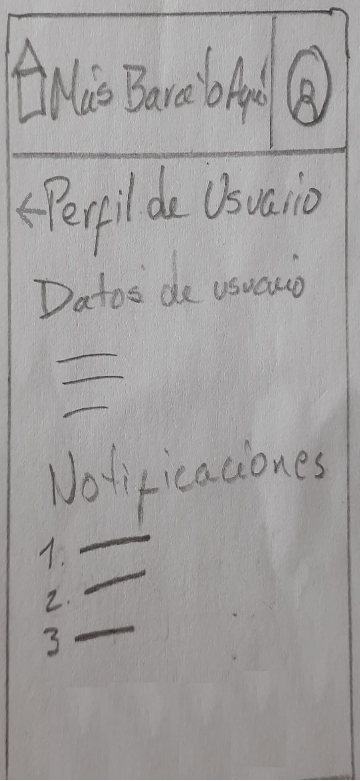 Más Barato Aquí
←Perfil de Usuario
Datos de usuario
Notificaciones
1.
2.
3